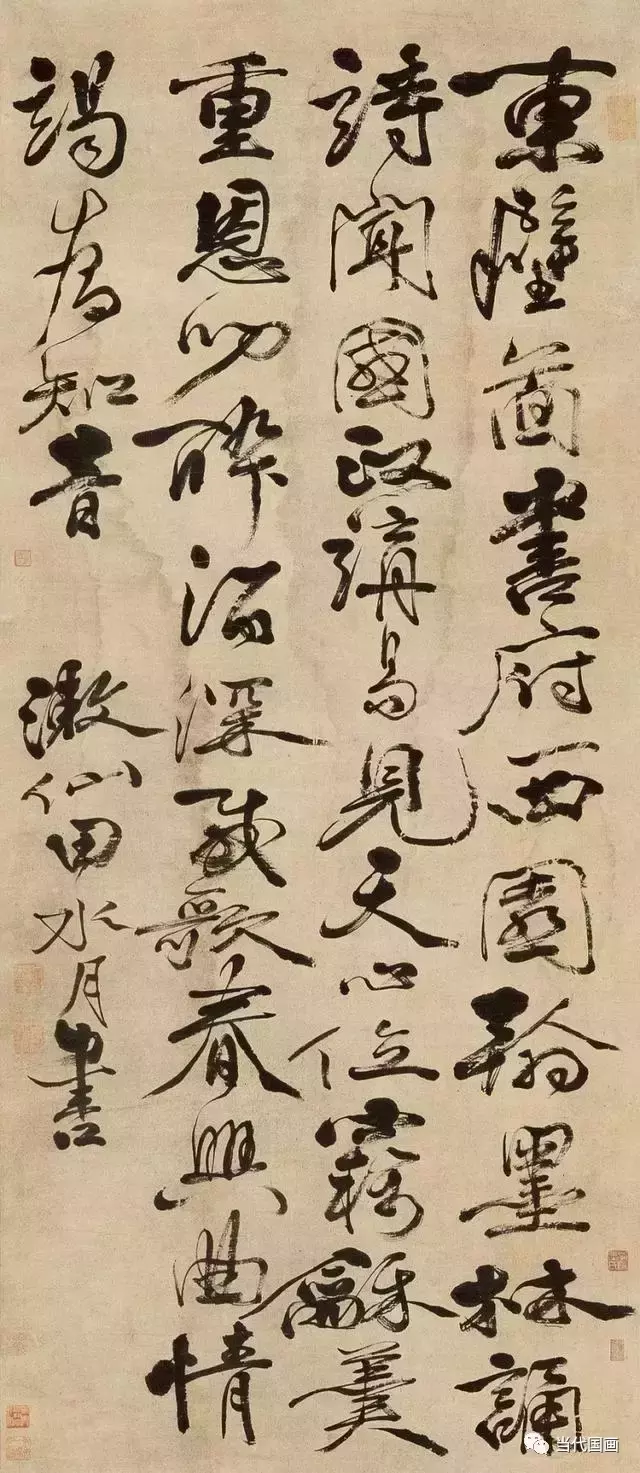 東壁圖書府西園翰墨林誦
詩聞國政講易見天心位竊龢羹
重恩叨醉酒深載歌春興曲情
竭為知音 漱仙田水月書
当代国画